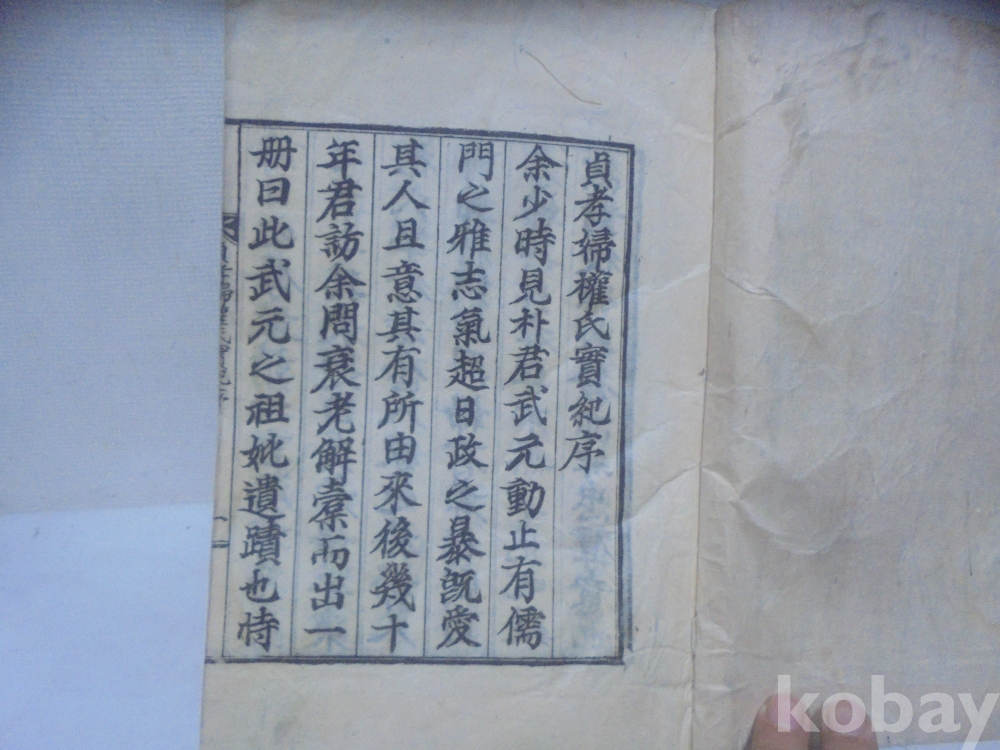 貞孝婦權氏實紀序
余少時見朴君武元動止有儒
門之雅志氣超日政之暴既愛
其人且意其有所由來後幾十
年君訪余問衰老解橐而出一
冊曰此武元之祖妣遺蹟也恃
kobay